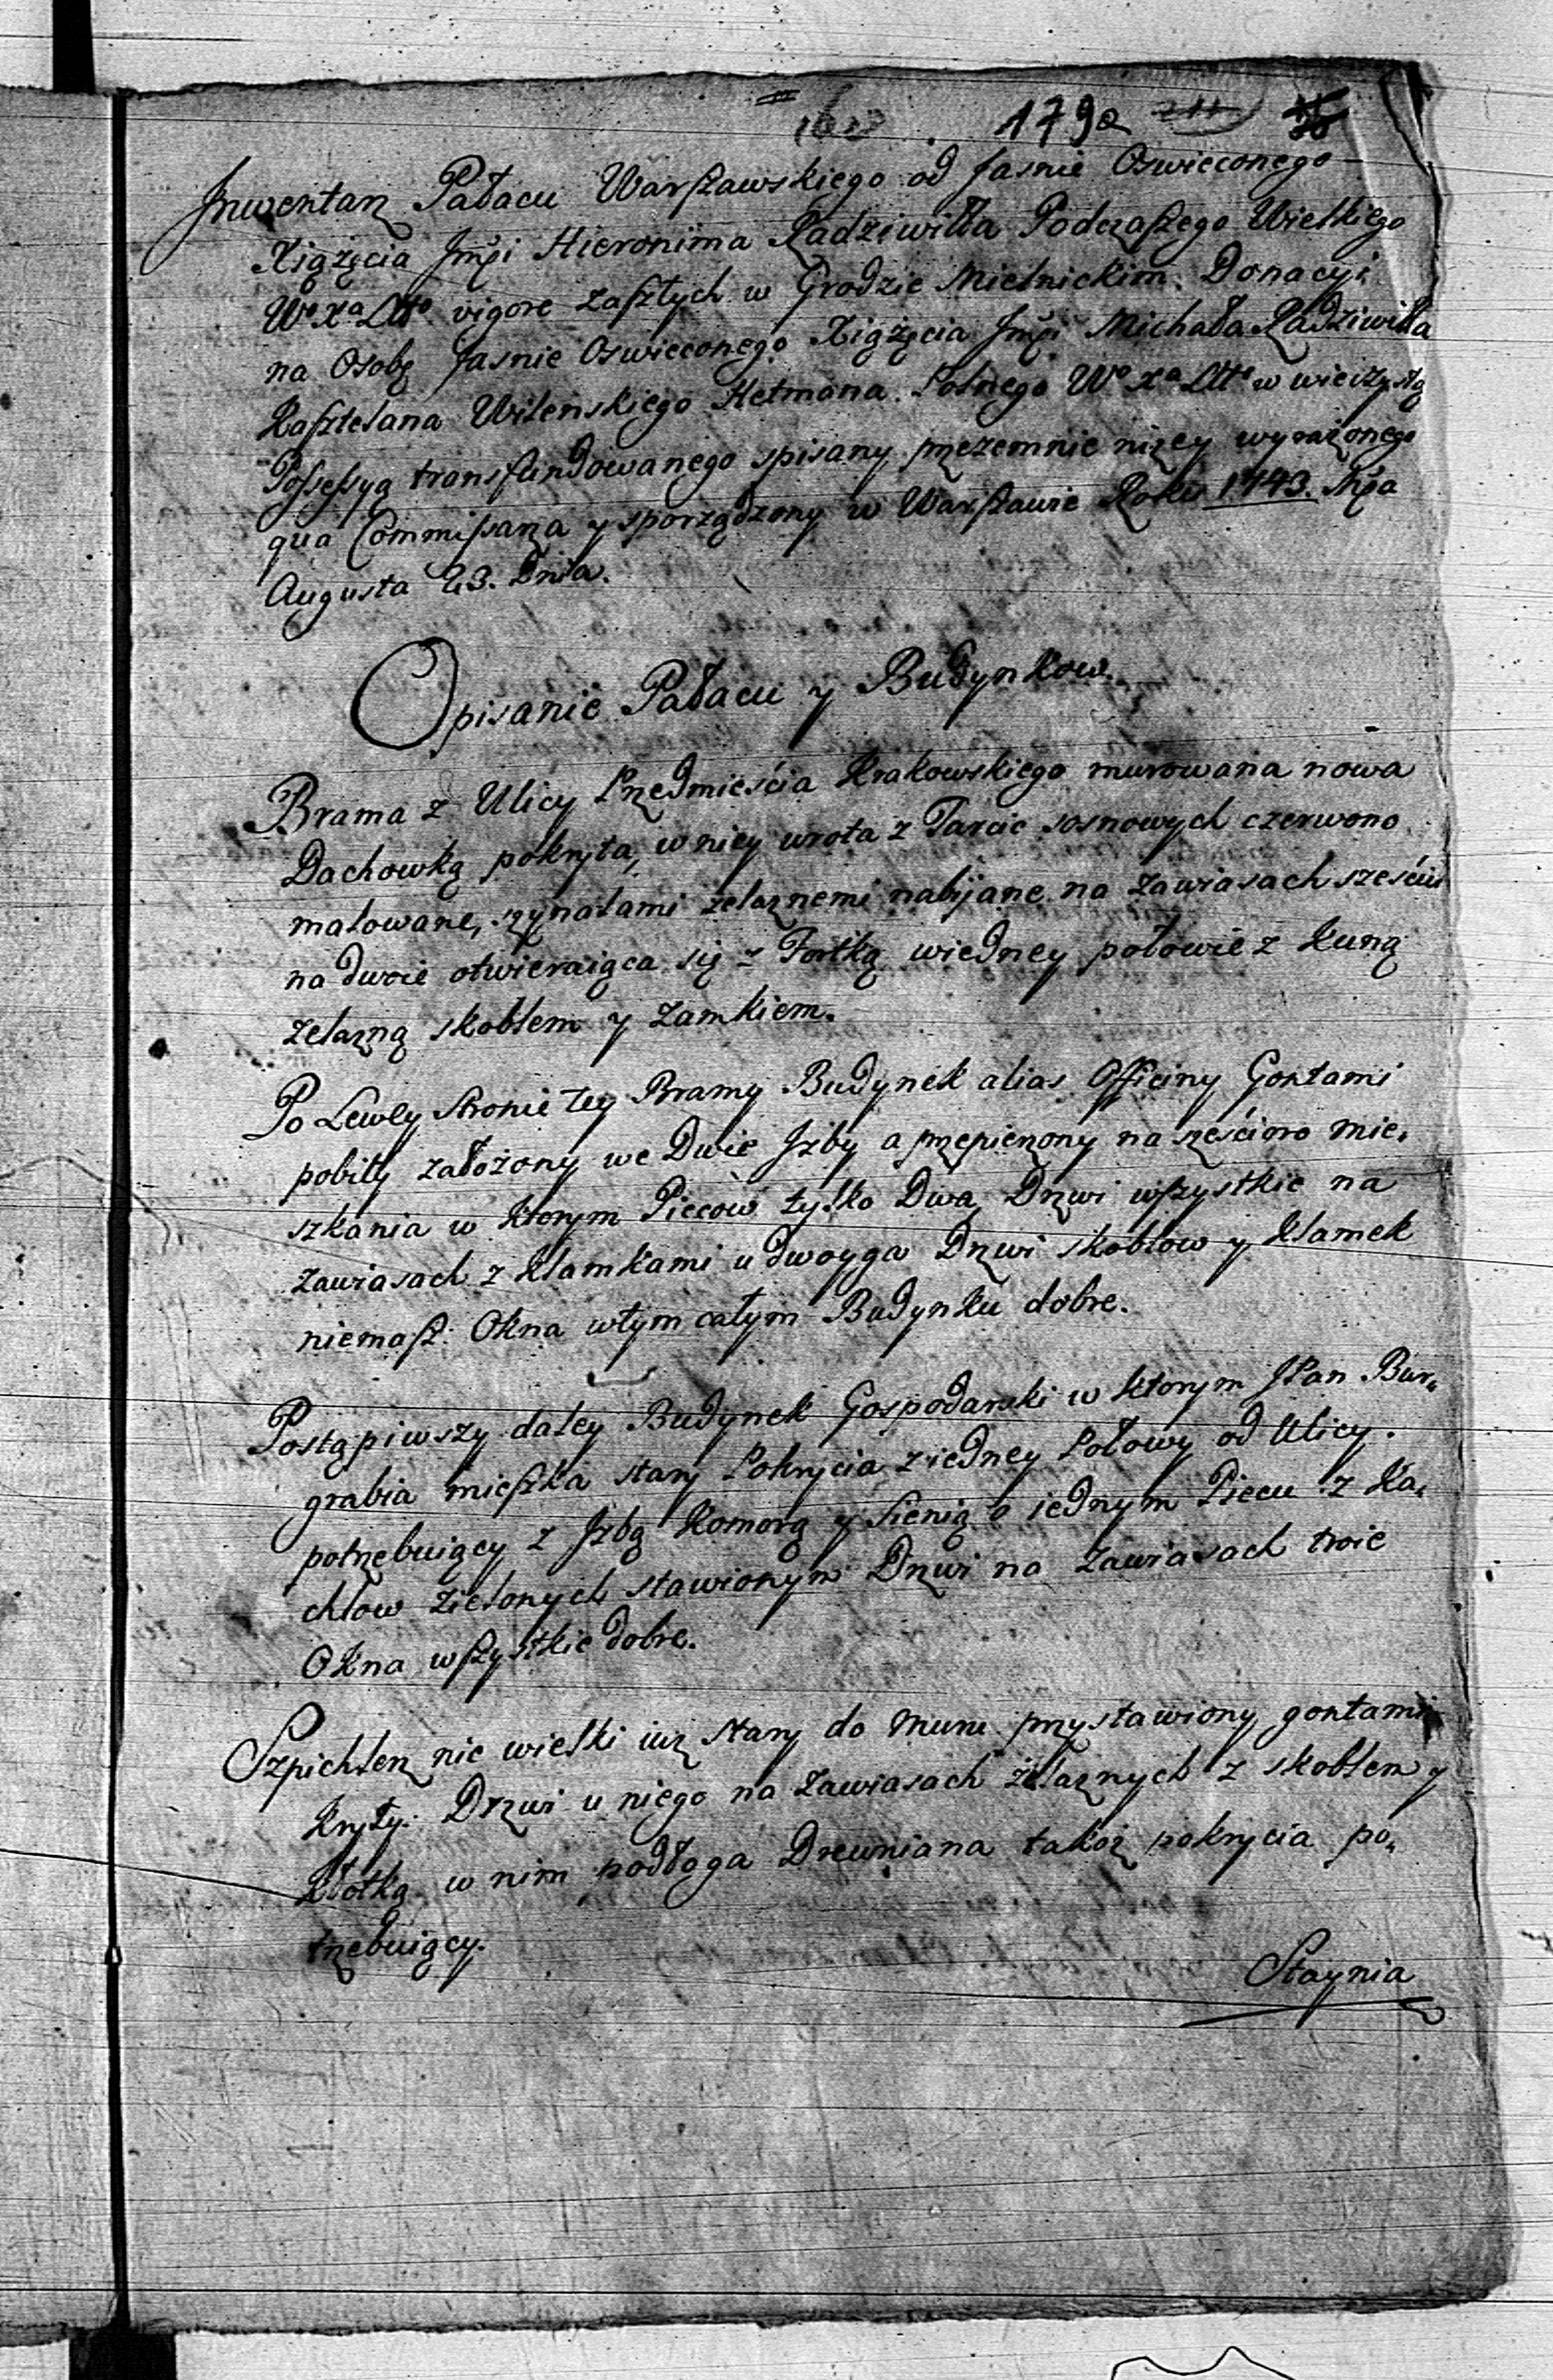 179a
Jnwentarz Pałacu Warszawskiego od Jasnie Oswieconego
Xiążęcia Jmći Hieronima Radziwiłła Podczaszego Wielkiego
Wº Xª Littº vigore zaszłych w Grodzie Mielnickim Donacyi
na Osobę Jasnie Oswieconego Xiążęcia Jmći Michała Radziwiłła
Kasztelana Wilenskiego Hetmana Polnego Wº Xª Littº w wieczystą
Possessyą transfundowanego spisany przezemnie niżey wyrażonego
qua Commissarza y sporządzony w Warszawie Roku 1743. Mca
Augusta 23. Dnia.
Opisanie Pałacu y Budynkow.
Brama z Ulicy Przedmieścia Krakowskiego murowana nowa
Dachowką pokryta, w niey wrota z Tarcic sosnowych czerwono
malowane, szynalami żelaznemi nabijane na zawiasach sześciu
na dwoie otwieraiąca się z Fortką wiedney połowie z Kuną
żelazną skoblem y zamkiem.
Po Lewey stronie tey Bramy Budynek alias Officiny Gontami
pobity założony we Dwie Jzby a przepierzony na sześcioro mie,
szkania w ktorym Piecow tylko Dwa, Drzwi wszystkie na
zawiasach z klamkami u dwoyga Drzwi skoblow y klamek
niemasz. Okna wtym całym Budynku dobre.
Postąpiwszy daley Budynek Gospodarski w ktorym JPan Bur,
grabia mieszka stary Pokrycia z iedney Połowy od Ulicy.
potrzebuiący z Jzbą Komorą y Sienią o iednym Piecu z Ka,
chlow zielonych stawionym Drzwi na zawiasach troie
Okna wszystkie dobre.
Szpichlerz nie wielki iuz stary do Muru przystawiony gontami
kryty. Drzwi u niego na zawiasach żelaznych z skoblem y
kłotką w nim podłoga Drewniana takoż pokrycia po,
trzebuiący.
Staynia